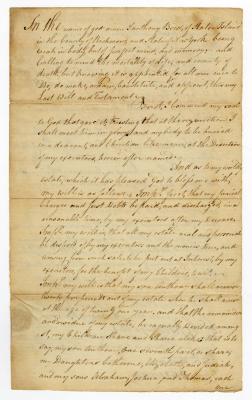 In the
name of god amen I Anthony of Staten Island
in the County of Richmond and State of New York being
weak in body, but of perfect mind and memory and
Calling to mind the mortality of life, and certainty of
death, but knowing it is appointed for all men once to
Die, do make, ordain, Constitute, and appoint, this my
Last Will and Testament
First, I Commend my soul
to God that gave it, Trusting that at the resurrection I
shall meet him in glory, and my body to be buried
in a decent, and Christian like manner, at the Discretion
of my executors herein after named
And as to my worldly
estate, which it has pleased God to bless me with,
my will is as follows, First, that my funeral
Charges and just Debts be paid, and discharged in a
reasonable time, by my executors after my Decease
my will is, that all my estate real and personal
be disposed of by my executors and the monies
from such sale, to be put out at Interest, by my
executors, for the benefit of my Children,
my will is that my son Anthony shall
out of my estate when he shall arrive
at the age of twenty one years, and that the remainder
and residue of my estate, be equally divided among
my Children share and share alike that is to
say my son Anthony, One seventh part, or share,
my Daughters Catherine, Elizabeth, and
and my sons Abraham, Joshua and Thomas, each